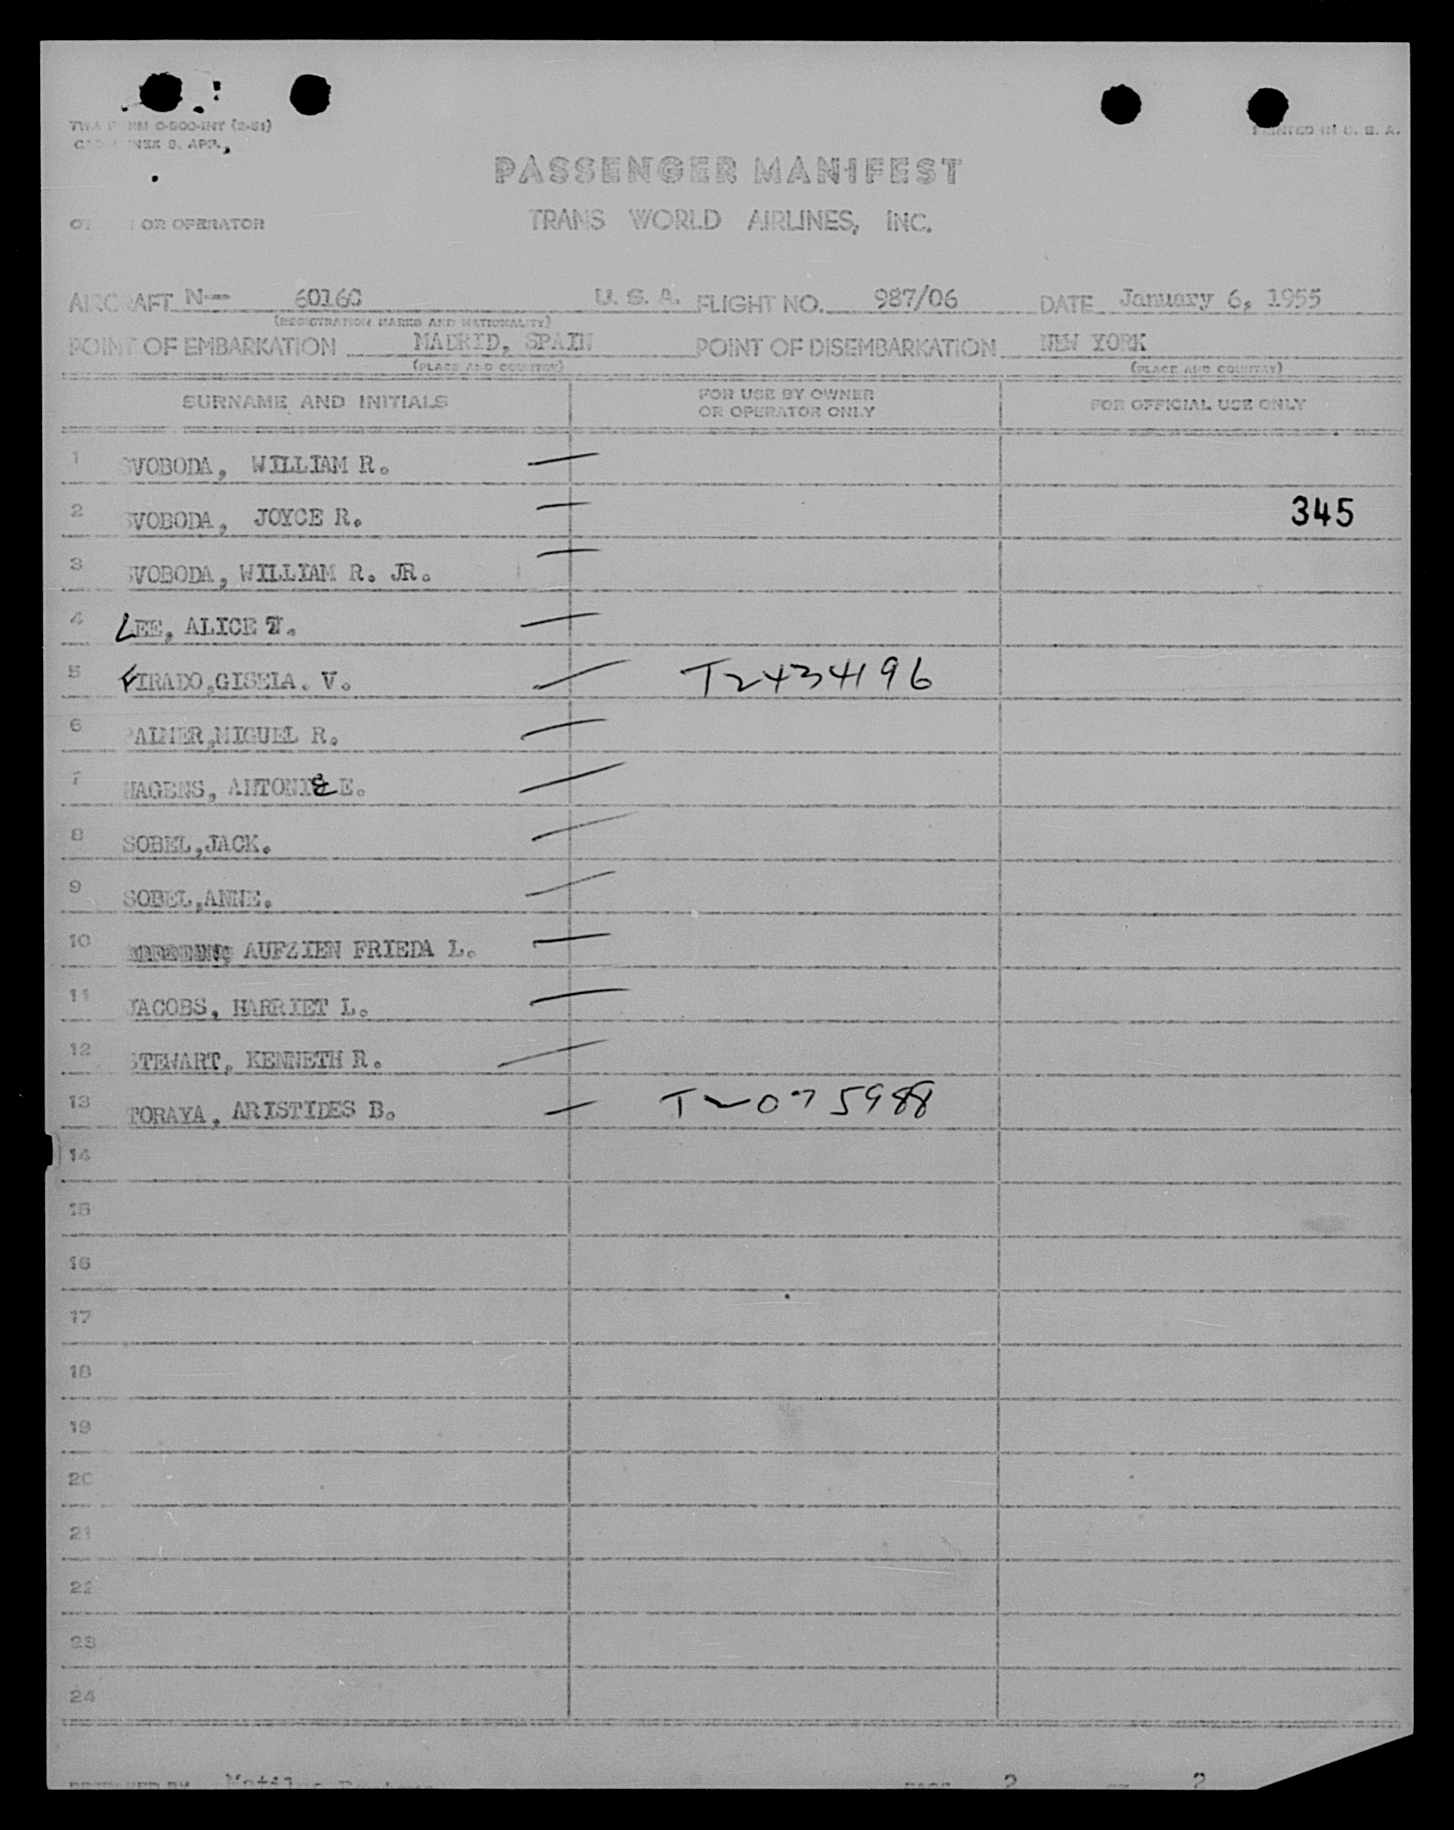 TWA FORM O-500-INT (2-51)
PRINTED IN U. S. A.
PASSENGER MANIFEST
OR OPERATOR
TRANS WORLD AIRLINES, INC.
AIRCRAFT N-- 6016C U. S. A. FLIGHT NO. 987/06 DATE January 6, 1955
(REGISTRATION MARKS AND NATIONALITY)
POINT OF EMBARKATION MADRID, SPAIN POINT OF DISEMBARKATION NEW YORK
(PLACE AND COUNTRY) (PLACE AND COUNTRY)
SURNAME AND INITIALS FOR USE BY OWNER OR OPERATOR ONLY FOR OFFICIAL USE ONLY
1 SVOBODA, WILLIAM R.
2 SVOBODA, JOYCE R. 345
3 SVOBODA, WILLIAM R. JR.
4 LEE, ALICE T.
5 FIRADO,GISELA. V. T2434196
6 PALMER,MIGUEL R.
7 HAGENS, ANTONIE E.
8 SOBEL,JACK.
9 SOBEL,ANNE.
10 AUFZIEN FRIEDA L.
11 JACOBS, HARRIET L.
12 STEWART, KENNETH R.
13 TORAYA, ARISTIDES B. T2075988
14
15
16
17
18
19
20
21
22
23
24
PREPARED BY PAGE 2 OF 2